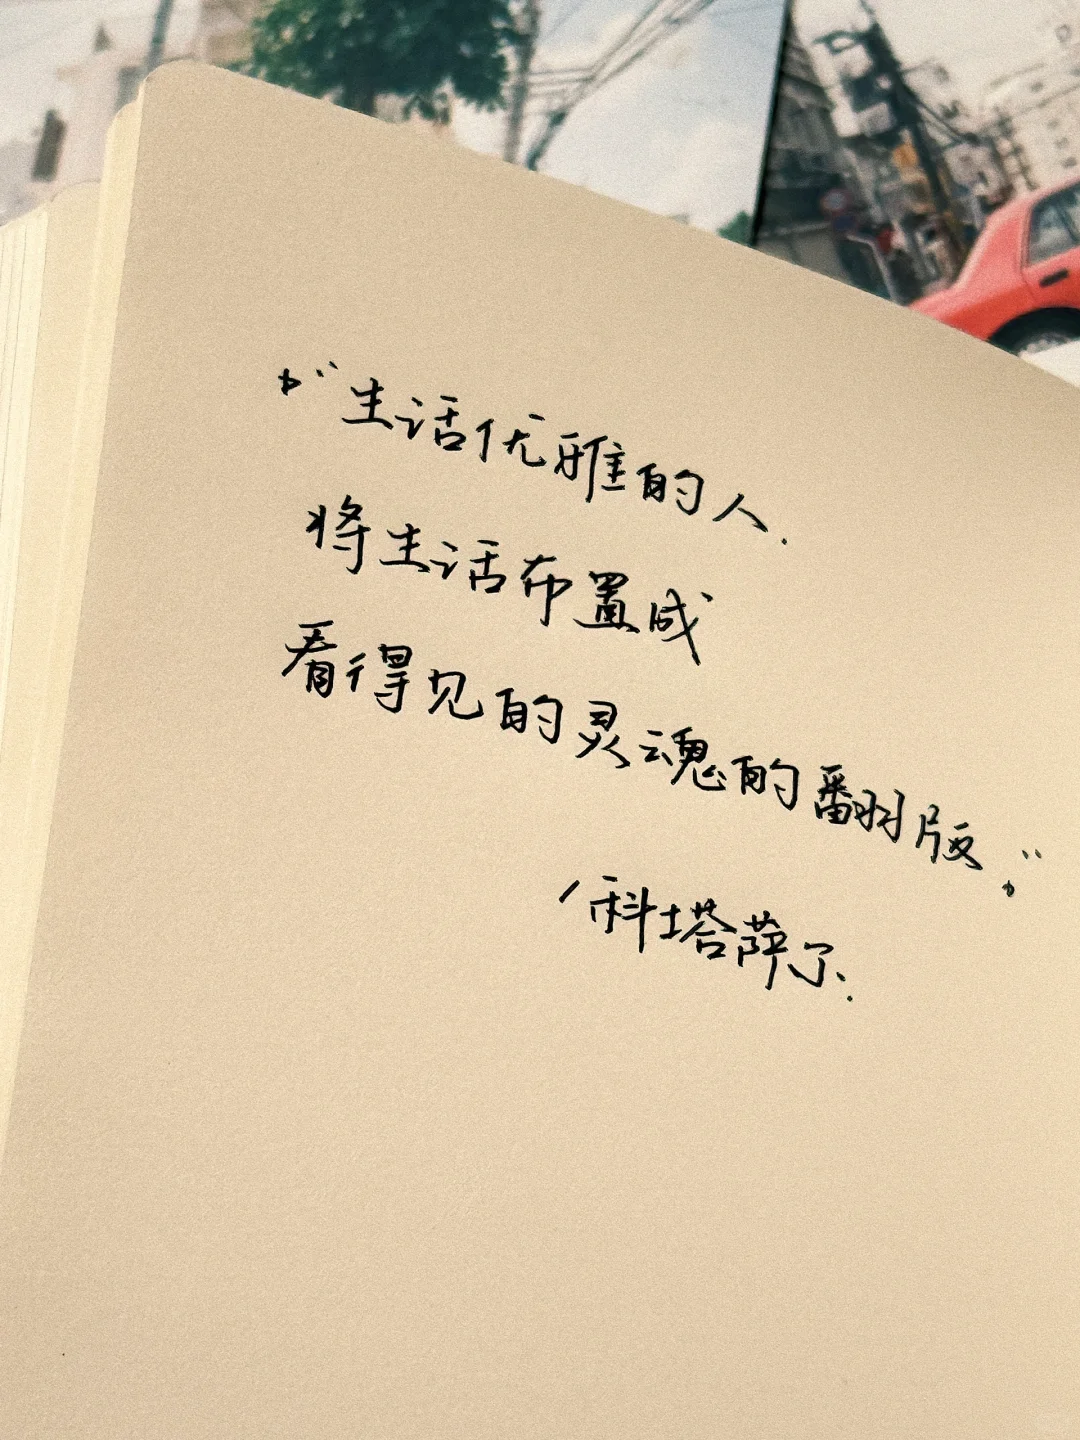 “生活优雅的人.
将生活布置成
看得见的灵魂的翻版.”
/科塔萨尔.